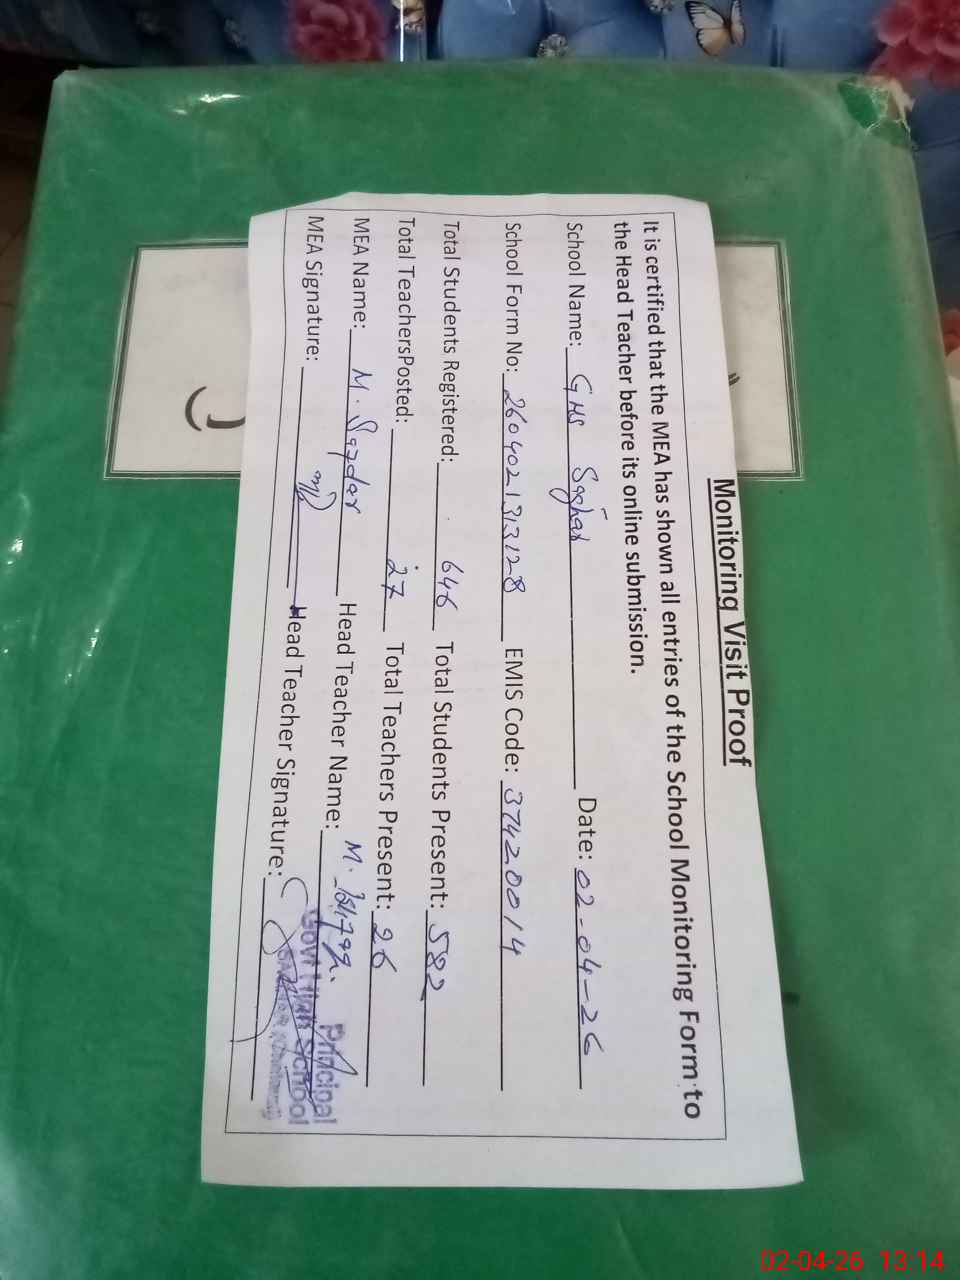 Monitoring Visit Proof
It is certified that the MEA has shown all entries of the School Monitoring Form to
the Head Teacher before its online submission.
School Name: GHS Saghar Date: 02-04-26
School Form No: 2604021313128 EMIS Code: 37420014
Total Students Registered: 646 Total Students Present: 582
Total TeachersPosted: 27 Total Teachers Present: 26
MEA Name: M. Safdar Head Teacher Name: M.
MEA Signature: Head Teacher Signature:
Principal
Govt High School
02-04-26 13:14